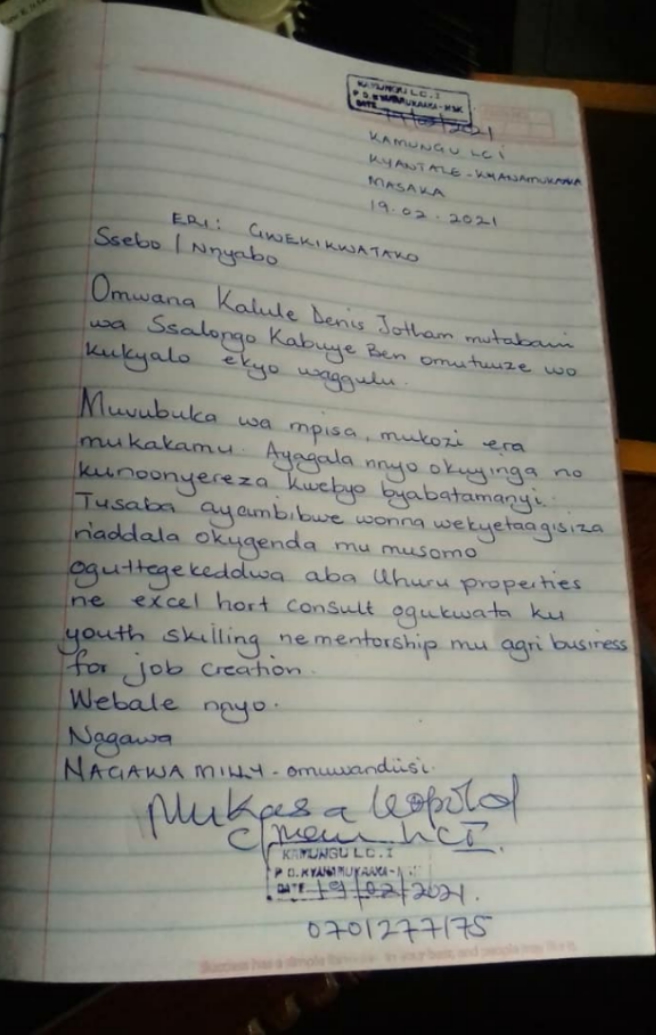 KAMUNGU L.C.I
P.O. KYANAMUKAAKA-MSK
DATE 19/02/2021
KAMUNGU LCI
KYANTALE - KYANAMUKAAKA
MASAKA
19.02.2021
ERI: GWEKIKWATAKO
Ssebo / Nnyabo
Omwana Kalule Denis Jotham mutabani
wa Ssalongo Kabuye Ben omutuuze wo
kukyalo ekyo waggulu.
Muvubuka wa mpisa, mukozi era
mukakamu. Ayagala nnyo okuyinga no
kunoonyereza kwebyo byabatamanyi.
Tusaba ayambibwe wonna wekyetaagisiza
naddala okugenda mu musomo
oguttegekeddwa aba Uhuru properties
ne excel hort consult ogukwata ku
youth skilling ne mentorship mu agri business
for job creation.
Webale nnyo.
Nagawa
NAGAWA MILLY - omuwandiisi.
Mukasa Leopold
C/man LCI.
KAMUNGU L.C.I
P.O. KYANAMUKAAKA-
DATE 19/02/2021.
0701277175